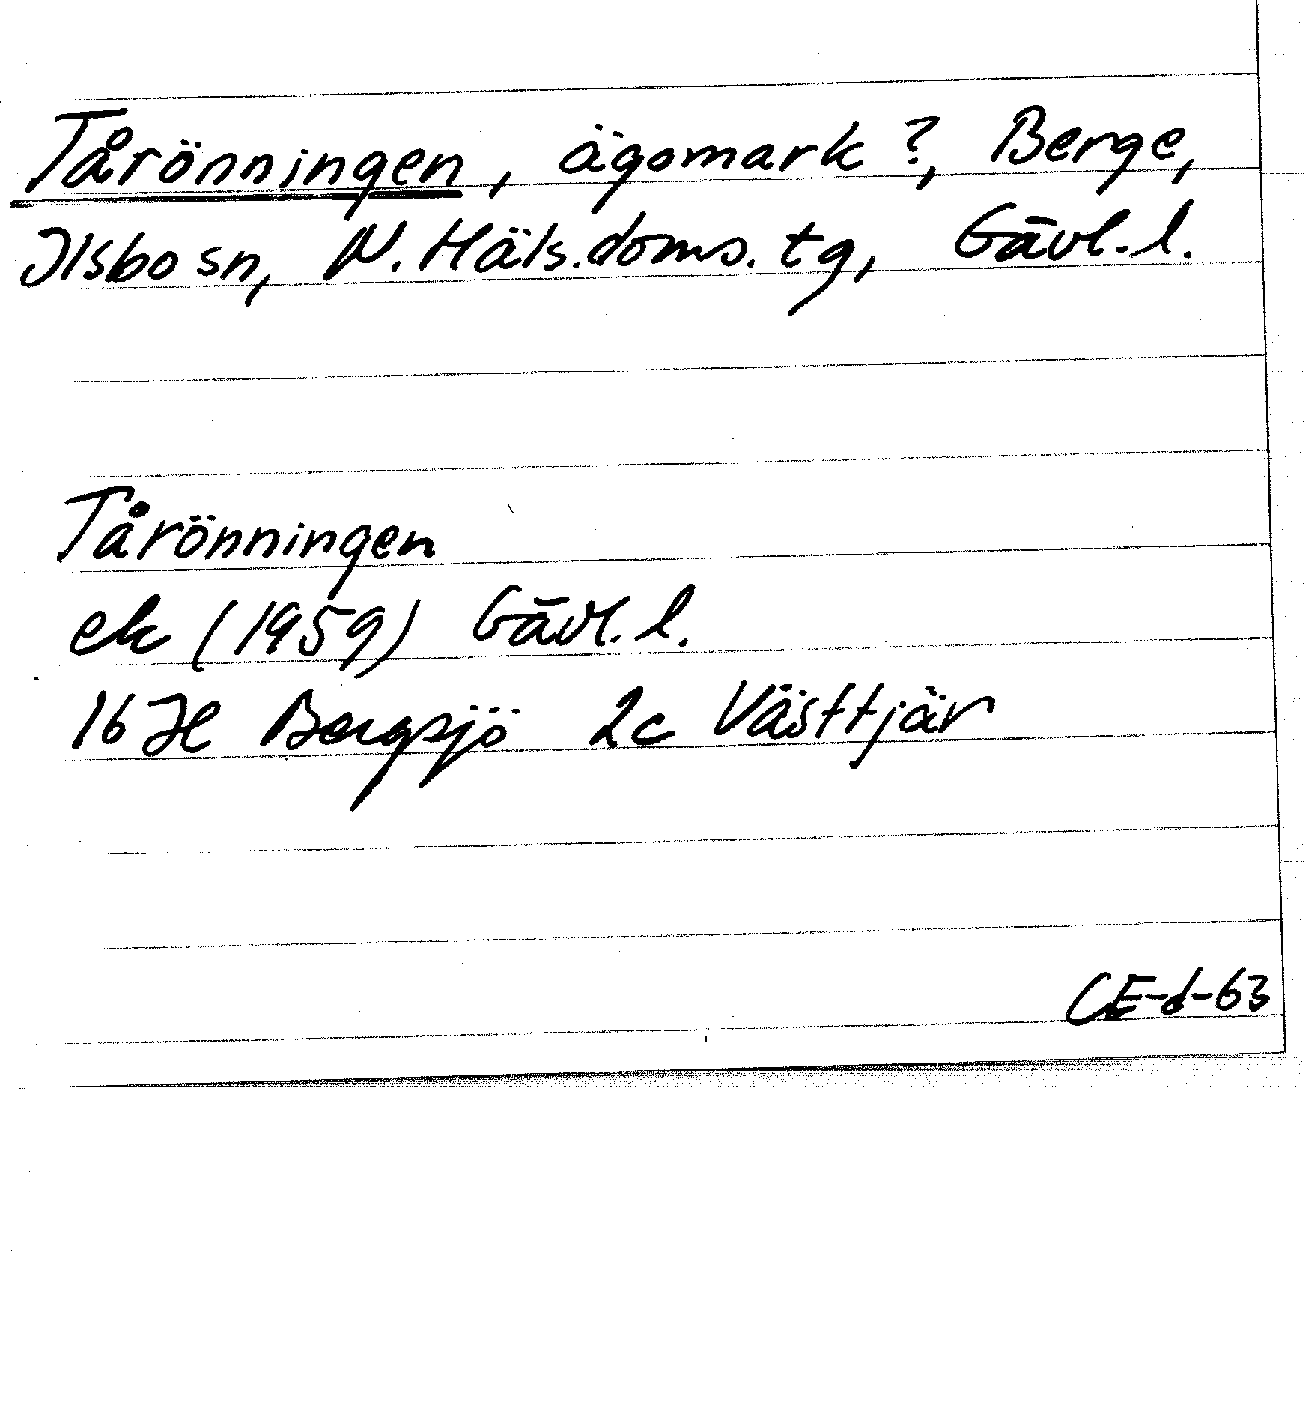 Tårönningen, ägomark?, Berge,
Ilsbo sn, N. Häls. doms. tg, Gävl. l.
Tårönningen
ek (1959) Gävl. l.
16 H Bergsjö 2c Västtjär
CE-d-63